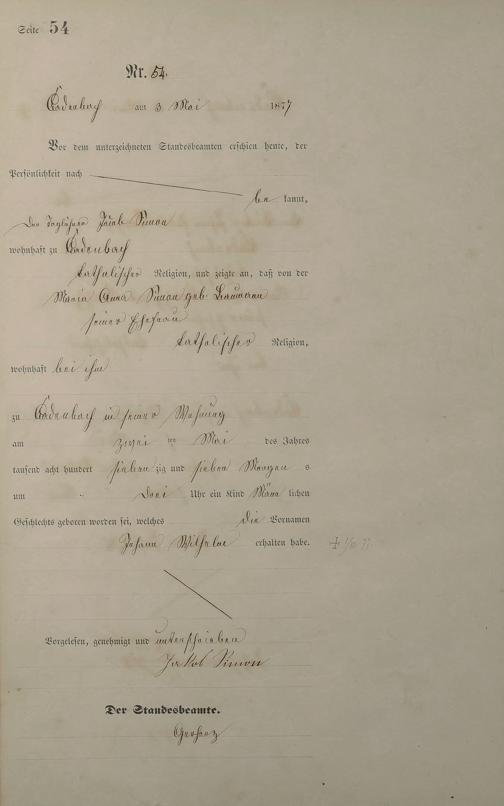 Seite 54
Nr. 54.
Cadenbach am 3 Mai 1877
Vor dem unterzeichneten Standesbeamten erschien heute, der
Persönlichkeit nach
be kannt,
Der Taglöhner Jacob Simon
wohnhaft zu Cadenbach
katholischer Religion, und zeigte an, daß von der
Maria Anna Simon geb.
seiner Ehefrau
katholischer Religion,
wohnhaft bei ihm
zu Cadenbach in seiner Wohnung
am zwei ten Mai des Jahres
tausend acht hundert sieben zig und sieben Morgen s
um Drei Uhr ein Kind Männ lichen
Geschlechts geboren worden sei, welches die Vornamen
Johann Wilhelm erhalten habe.
Vorgelesen, genehmigt und unterschrieben
Jakob Simon
Der Standesbeamte.